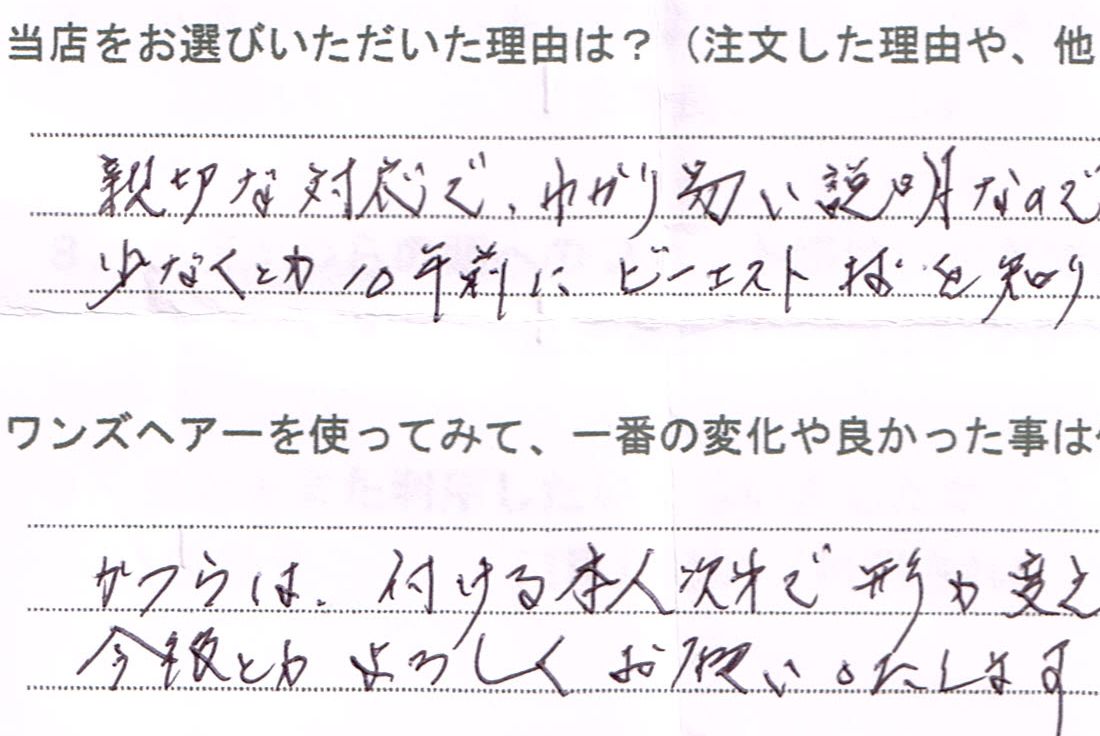 当店をお選びいただいた理由は？（注文した理由や、他
親切な対応で、わかり易い説明なので
少なくとか10年前に ビーエスト様を知り
ワンズヘアーを使ってみて、一番の変化や良かった事は
かつらは、付ける本人次才で 形か変え
今後とか よろしく お願いいたします